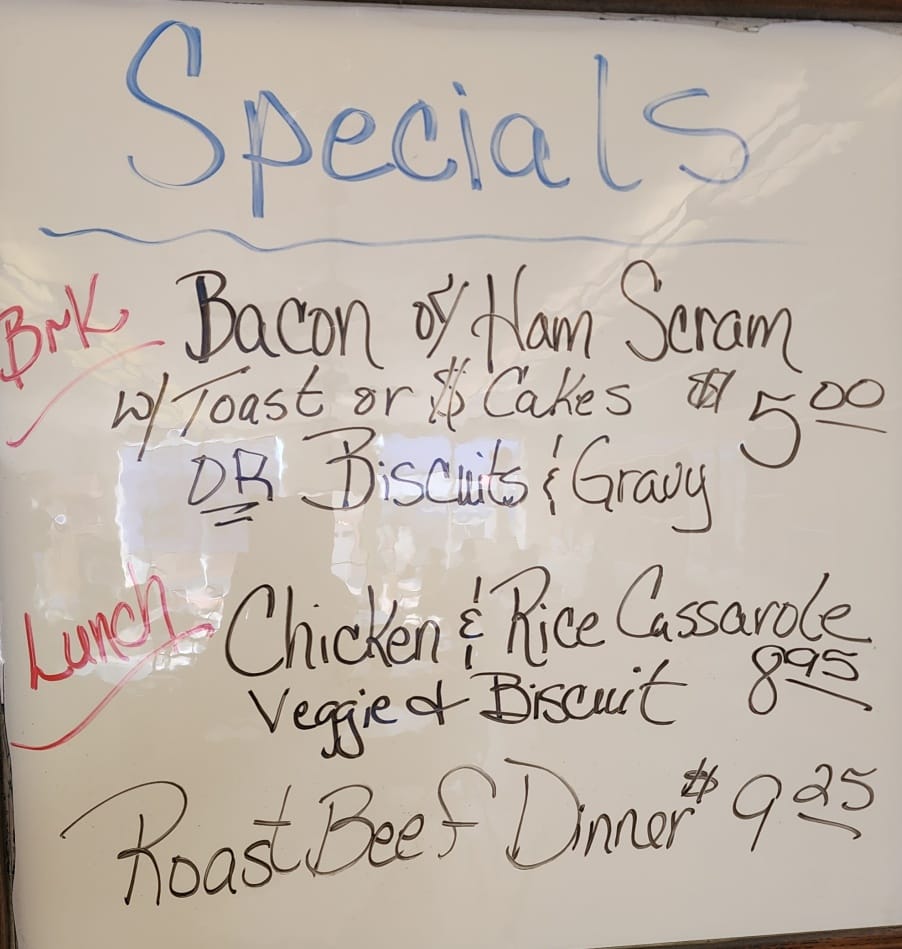 Specials
Brk Bacon or Ham Scram
w/ Toast or $ Cakes $5.00
OR Biscuits & Gravy
Lunch Chicken & Rice Cassarole
Veggie & Biscuit 8.95
Roast Beef Dinner $9.25